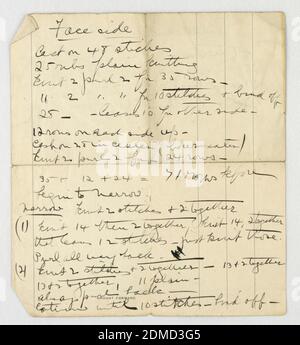 Face side
Cast on 48 stiches
25 ribs plain knitting
Knit 2 purl 2 for 35 rows -
" 2 " " for 10 stitches & bind off
25 - - leaves 10 for other side -
12 rows on each side up -
Cast on 25 in center
Knit 2 purl 2 for 24 rows -
35 + 12 + 24 = 71 rows before
begin to narrow.
Narrow Knit 2 stitches & 2 together
(1) Knit 14 then 2 together, Knit 14, 2 together
that leaves 12 stitches - just knit those
Purl all way back.
(2) Knit 2 stitches & 2 together - 13 & 2 together
13 & 2 together, 11 plain -
always purl back
until 10 stitches - bind off -
AMOUNT FORWARD
alamy
Image ID: 2DMD3G5
www.alamy.com